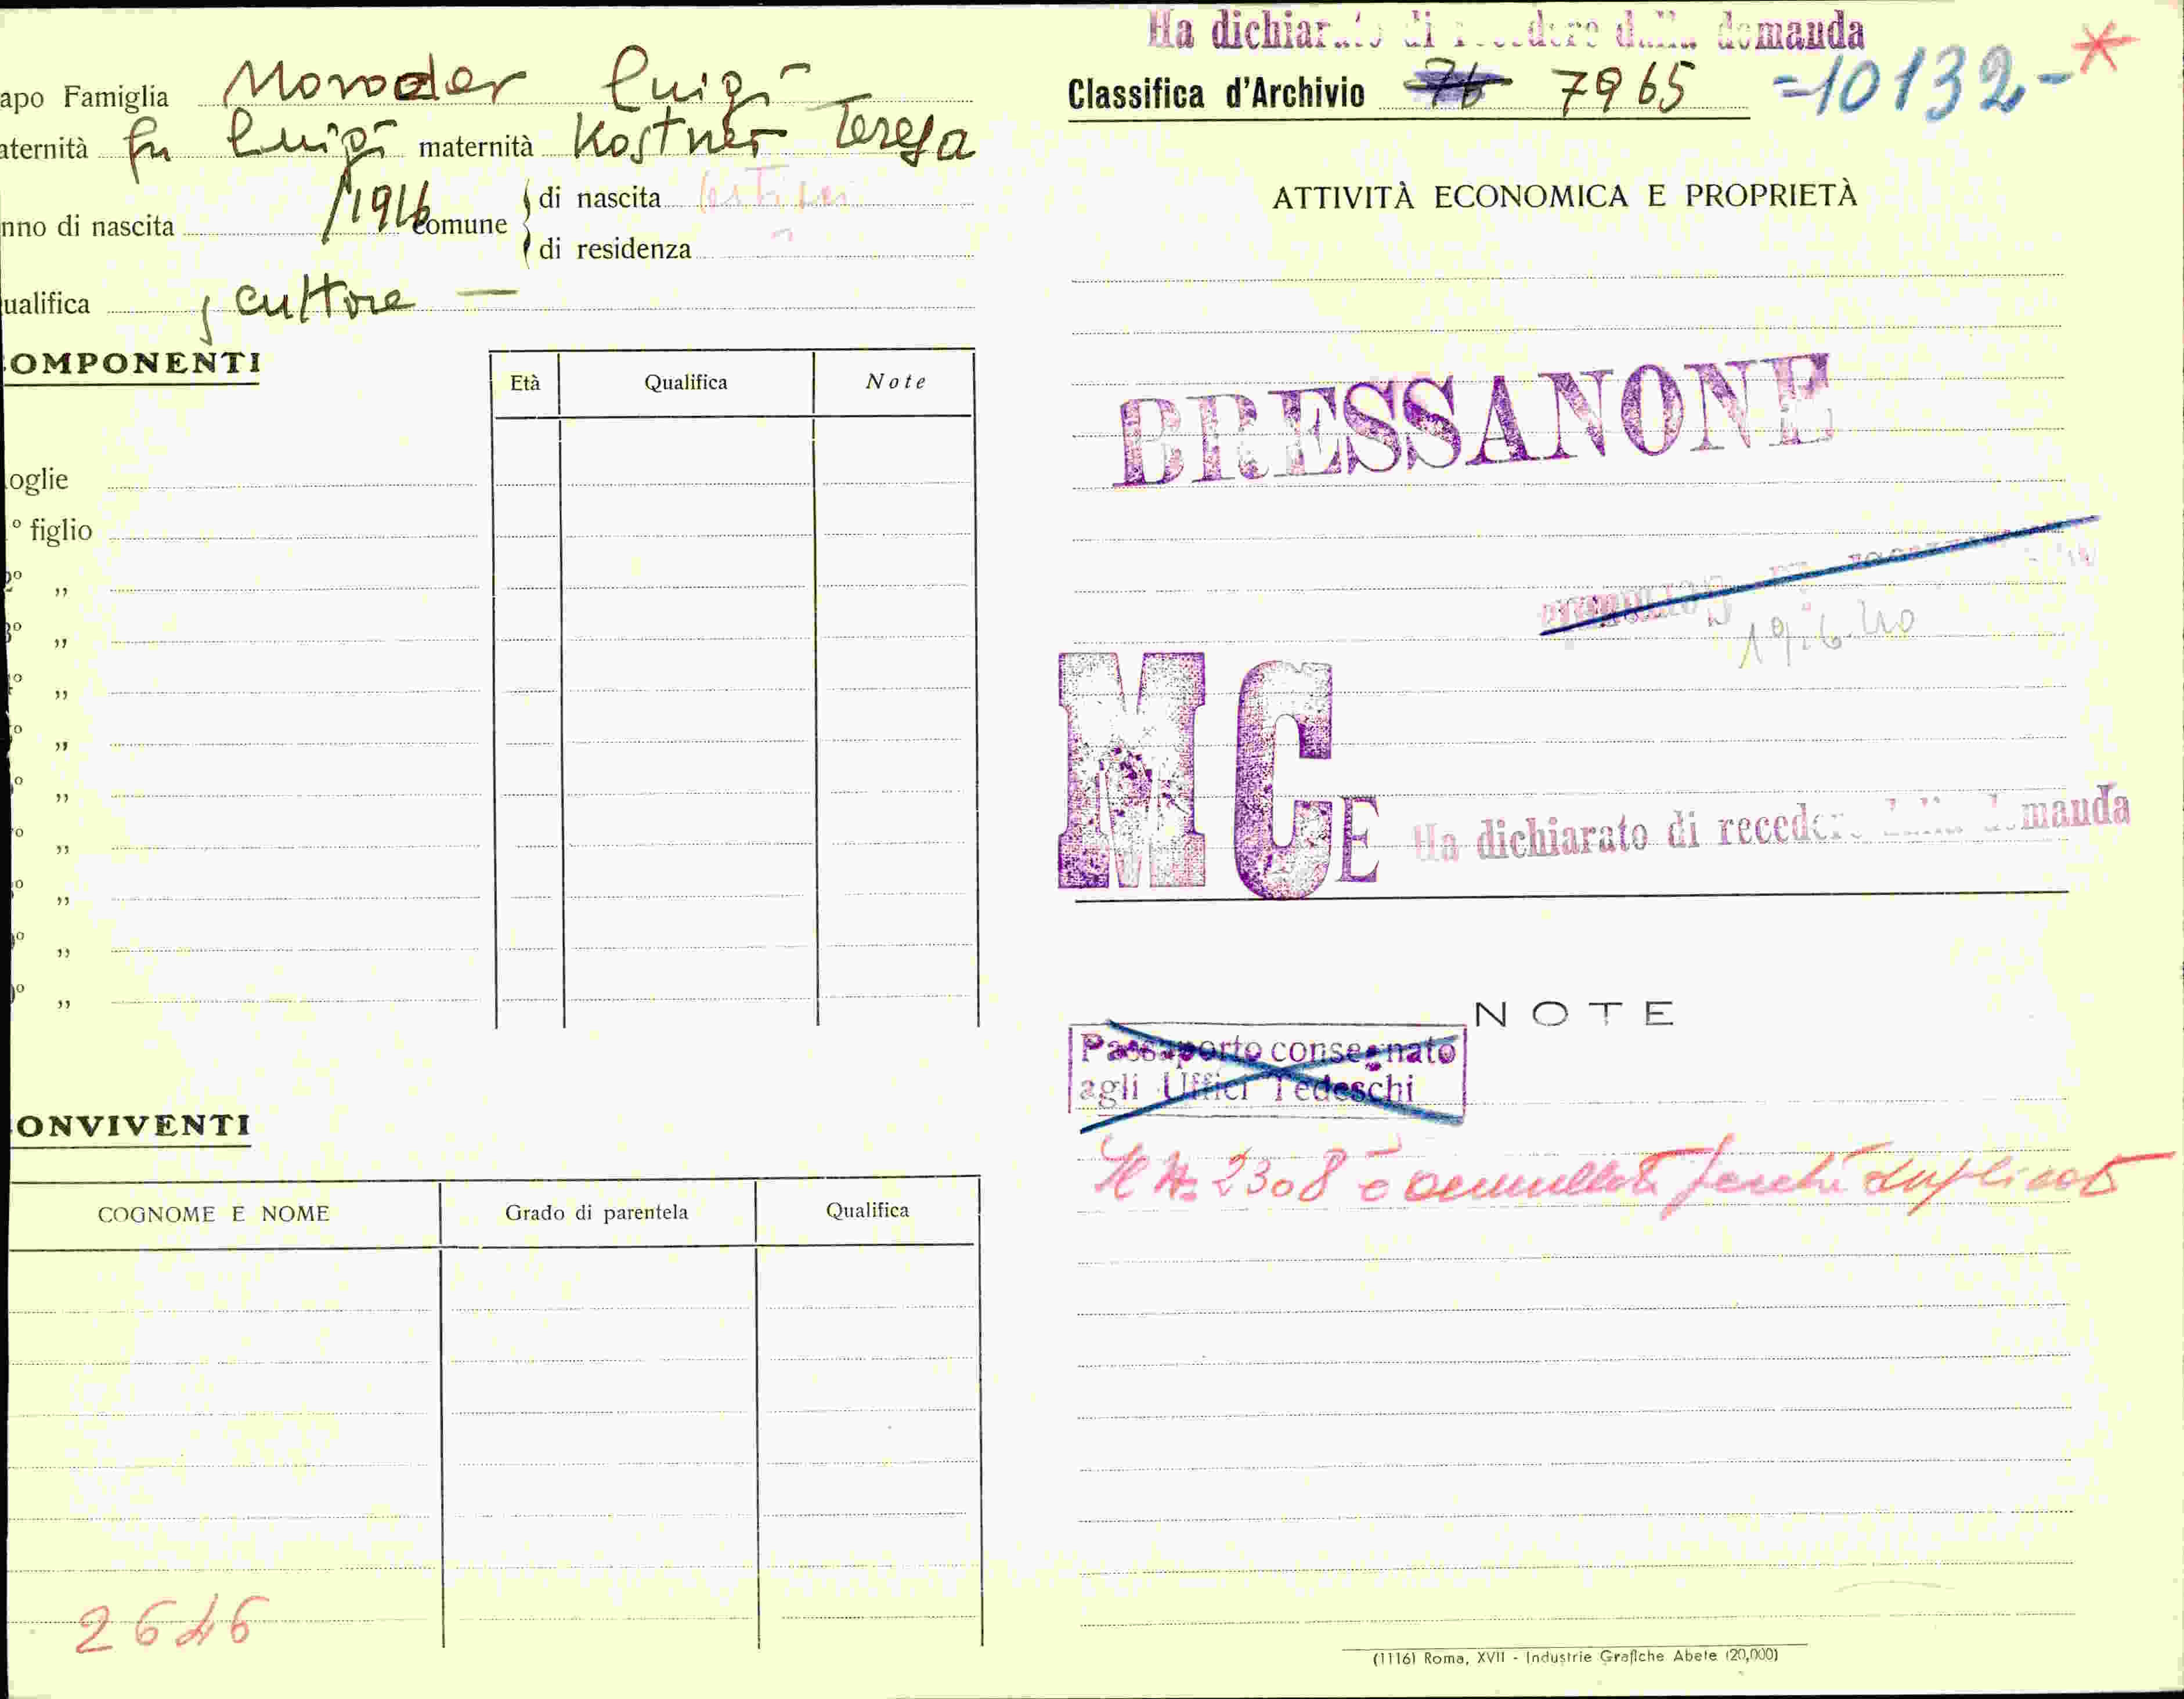 apo Famiglia Moroder Luigi
aternità fu Luigi maternità Kostner Teresa
nno di nascita 1916 Comune di nascita
di residenza
ualifica scultore —
OMPONENTI
Età Qualifica Note
oglie
º figlio
2º „
3º „
º „
º „
º „
º „
º „
º „
º „
ONVIVENTI
COGNOME E NOME Grado di parentela Qualifica
2646
Ha dichiarato di recedere dalla domanda
Classifica d'Archivio 7965 =10132-*
ATTIVITÀ ECONOMICA E PROPRIETÀ
BRESSANONE
19.6.40
MCE Ha dichiarato di recedere dalla domanda
NOTE
Passaporto consegnato
agli Uffici Tedeschi
Il N. 2308 è annullato perché duplicato
(1116) Roma, XVII - Industrie Grafiche Abete (20,000)